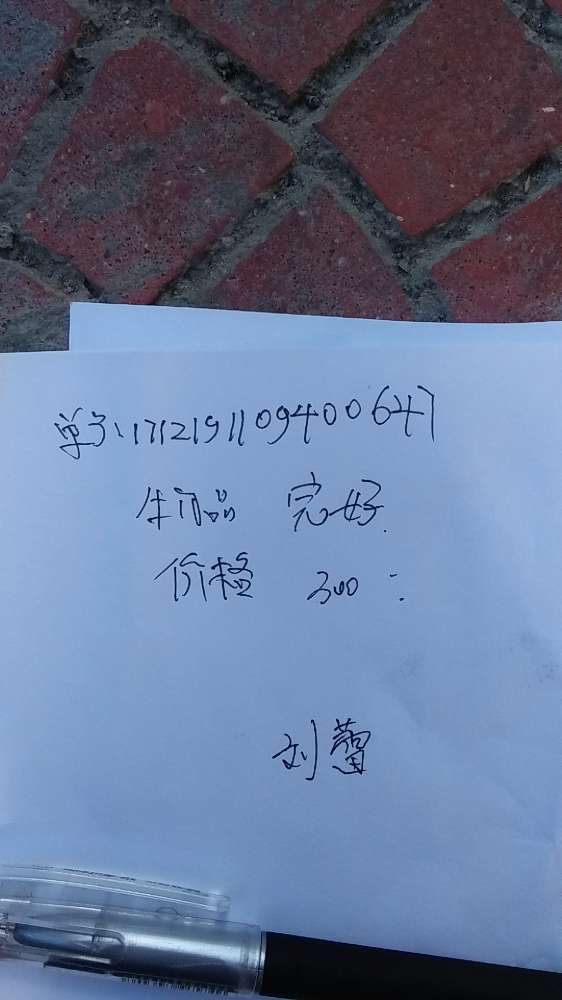 单号1712191109400647
物品 完好
价格 300
刘蕾